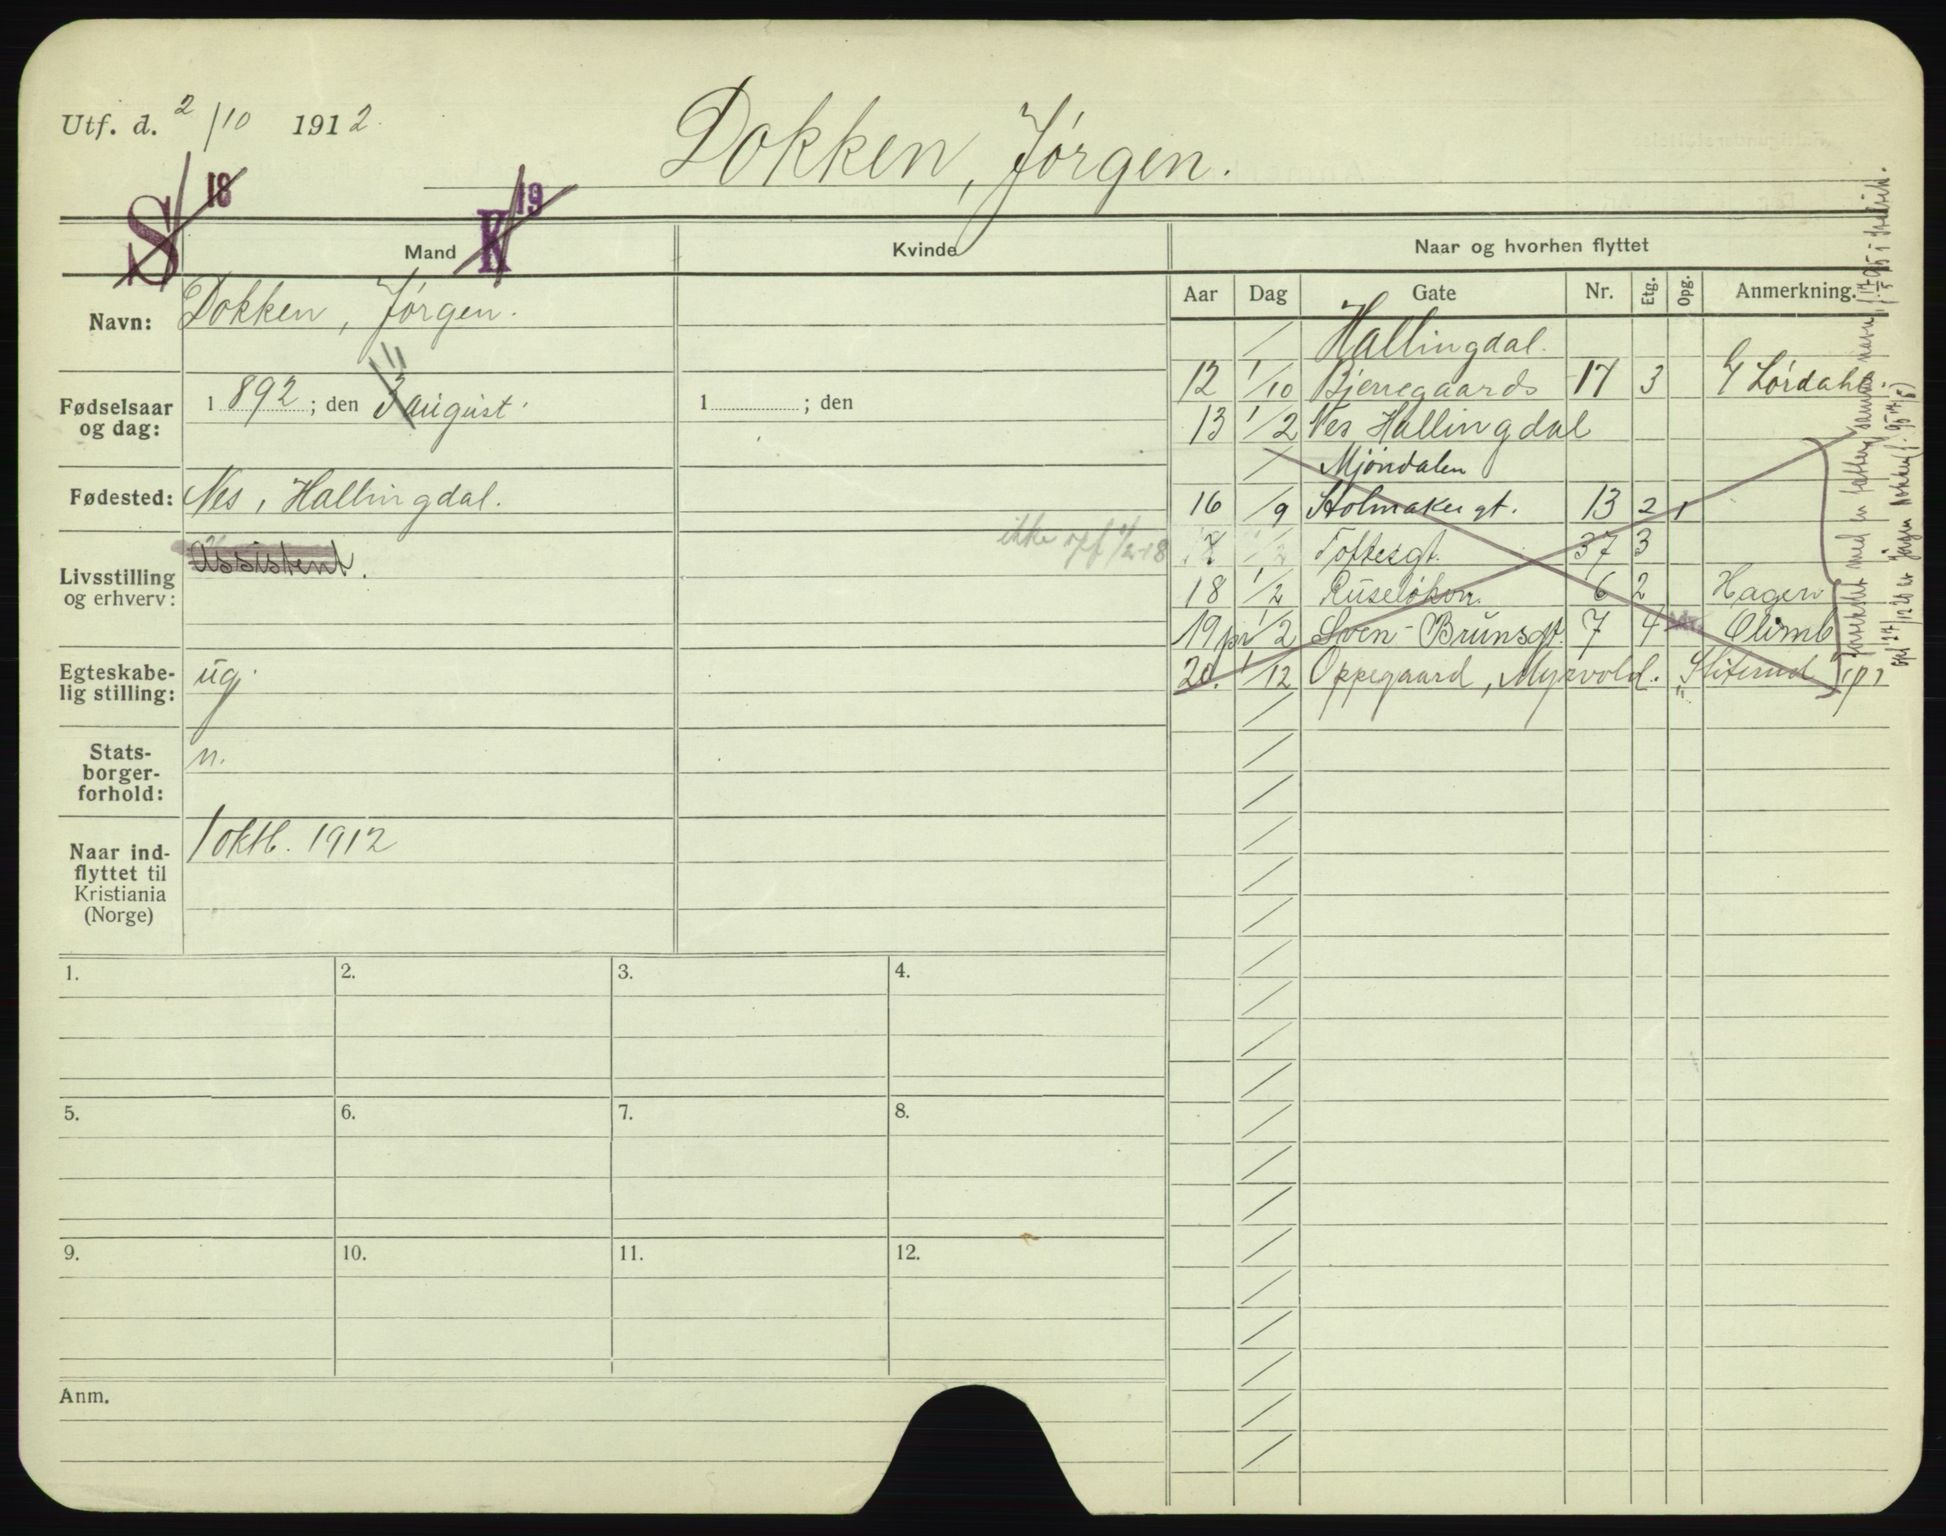 Utf. d. 2/10 1912.
Dokken, Jørgen.
S/18
K/19
Mand
Kvinde
Naar og hvorhen flyttet
Aar Dag Gate Nr. Etg. Opg. Anmerkning.
Navn: Dokken, Jørgen.
Fødselsaar og dag: 1892; den 11 3 august
1 ; den
Fødested: Nes, Hallingdal.
Livsstilling og erhverv: Assistent.
ikke opf 1/2-18
Egteskabelig stilling: ug.
Statsborgerforhold: n.
Naar indflyttet til Kristiania (Norge) 1 oktb. 1912
/ Hallingdal.
12 1/10 Bjerregaards 17 3 Lørdahl.
13 1/2 Nes Hallingdal
/ Mjøndalen
16 /9 Holmaker gt. 13 2 1
1/2 Toftesgt. 37 3
18 1/2 Ruseløkvn. 6 2 Hagen
19 pr 1/2 Sven-Brunsgt. 7 4 Olimb
20. 1/12 Oppegaard, Myrvold.
forvekslet med en fætter samme navn
1.
2.
3.
4.
5.
6.
7.
8.
9.
10.
11.
12.
Anm.